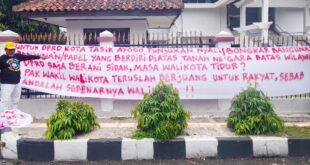 UNTUK DPRD KOTA TASIK AYOOO TUNJUKAN NYALI (BONGKAR BANGUNAN
/PAPEL YANG BERDIRI DIATAS TANAH NEGARA BATAS WILAYAH
DPRD SMA BERANI SIDAK, MASA WALIKOTA TIDUR ?
PAK WAKIL WALIKOTA TERUSLAH BERJUANG UNTUK RAKYAT, SEBAB
ANDALAH SEBENARNYA WALI !!